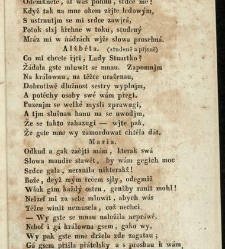 Odemknete, ať wás pohnu, srdce mé!
Když tak na mne okem zjjte ledowým,
S ustrnutjm se mi srdce zawjrá,
Potok slzj hrčhne w toku, studený
Mráz mi w ňádrách wjže slowa prosebná.
Alžběta. (studeně a přjsně)
Co mi chcete řjci, Lady Stuartko?
Žádala gste mluwit se mnau. Zapomjnám
Na králownu, na těžce uraženau,
Dobrotiwé dlužnost sestry wyplnjm,
A potěchy osoby swé wám přegi.
Puzenjm se welké mysli zprawugi,
A tjm slušnau hanu na se uwodjm,
Že se takto zahazugi — wjte pak,
Že gste mne wy zamordowat chtěla dát.
Maria.
Odkud a gak začjti mám, kterak swá
Slowa maudře stawět, by wám gegich moc
Srdce gala, neranila nikterak!
Bože, deyž mým řečem sjly, odegmi
Wšak gim každý osten, genžby ranit mohl!
Nelzeť mi za sebe mluwit, abych wás
Těžce winit nemusela, což nechci.
— Wy gste se mnau naložila neprávě.
Neboť i gá králownau gsem, gako wy,
Wy pak gste mne držela gde zagatau,
Gá gsem přišla přátelsky a s prosbau k wám,